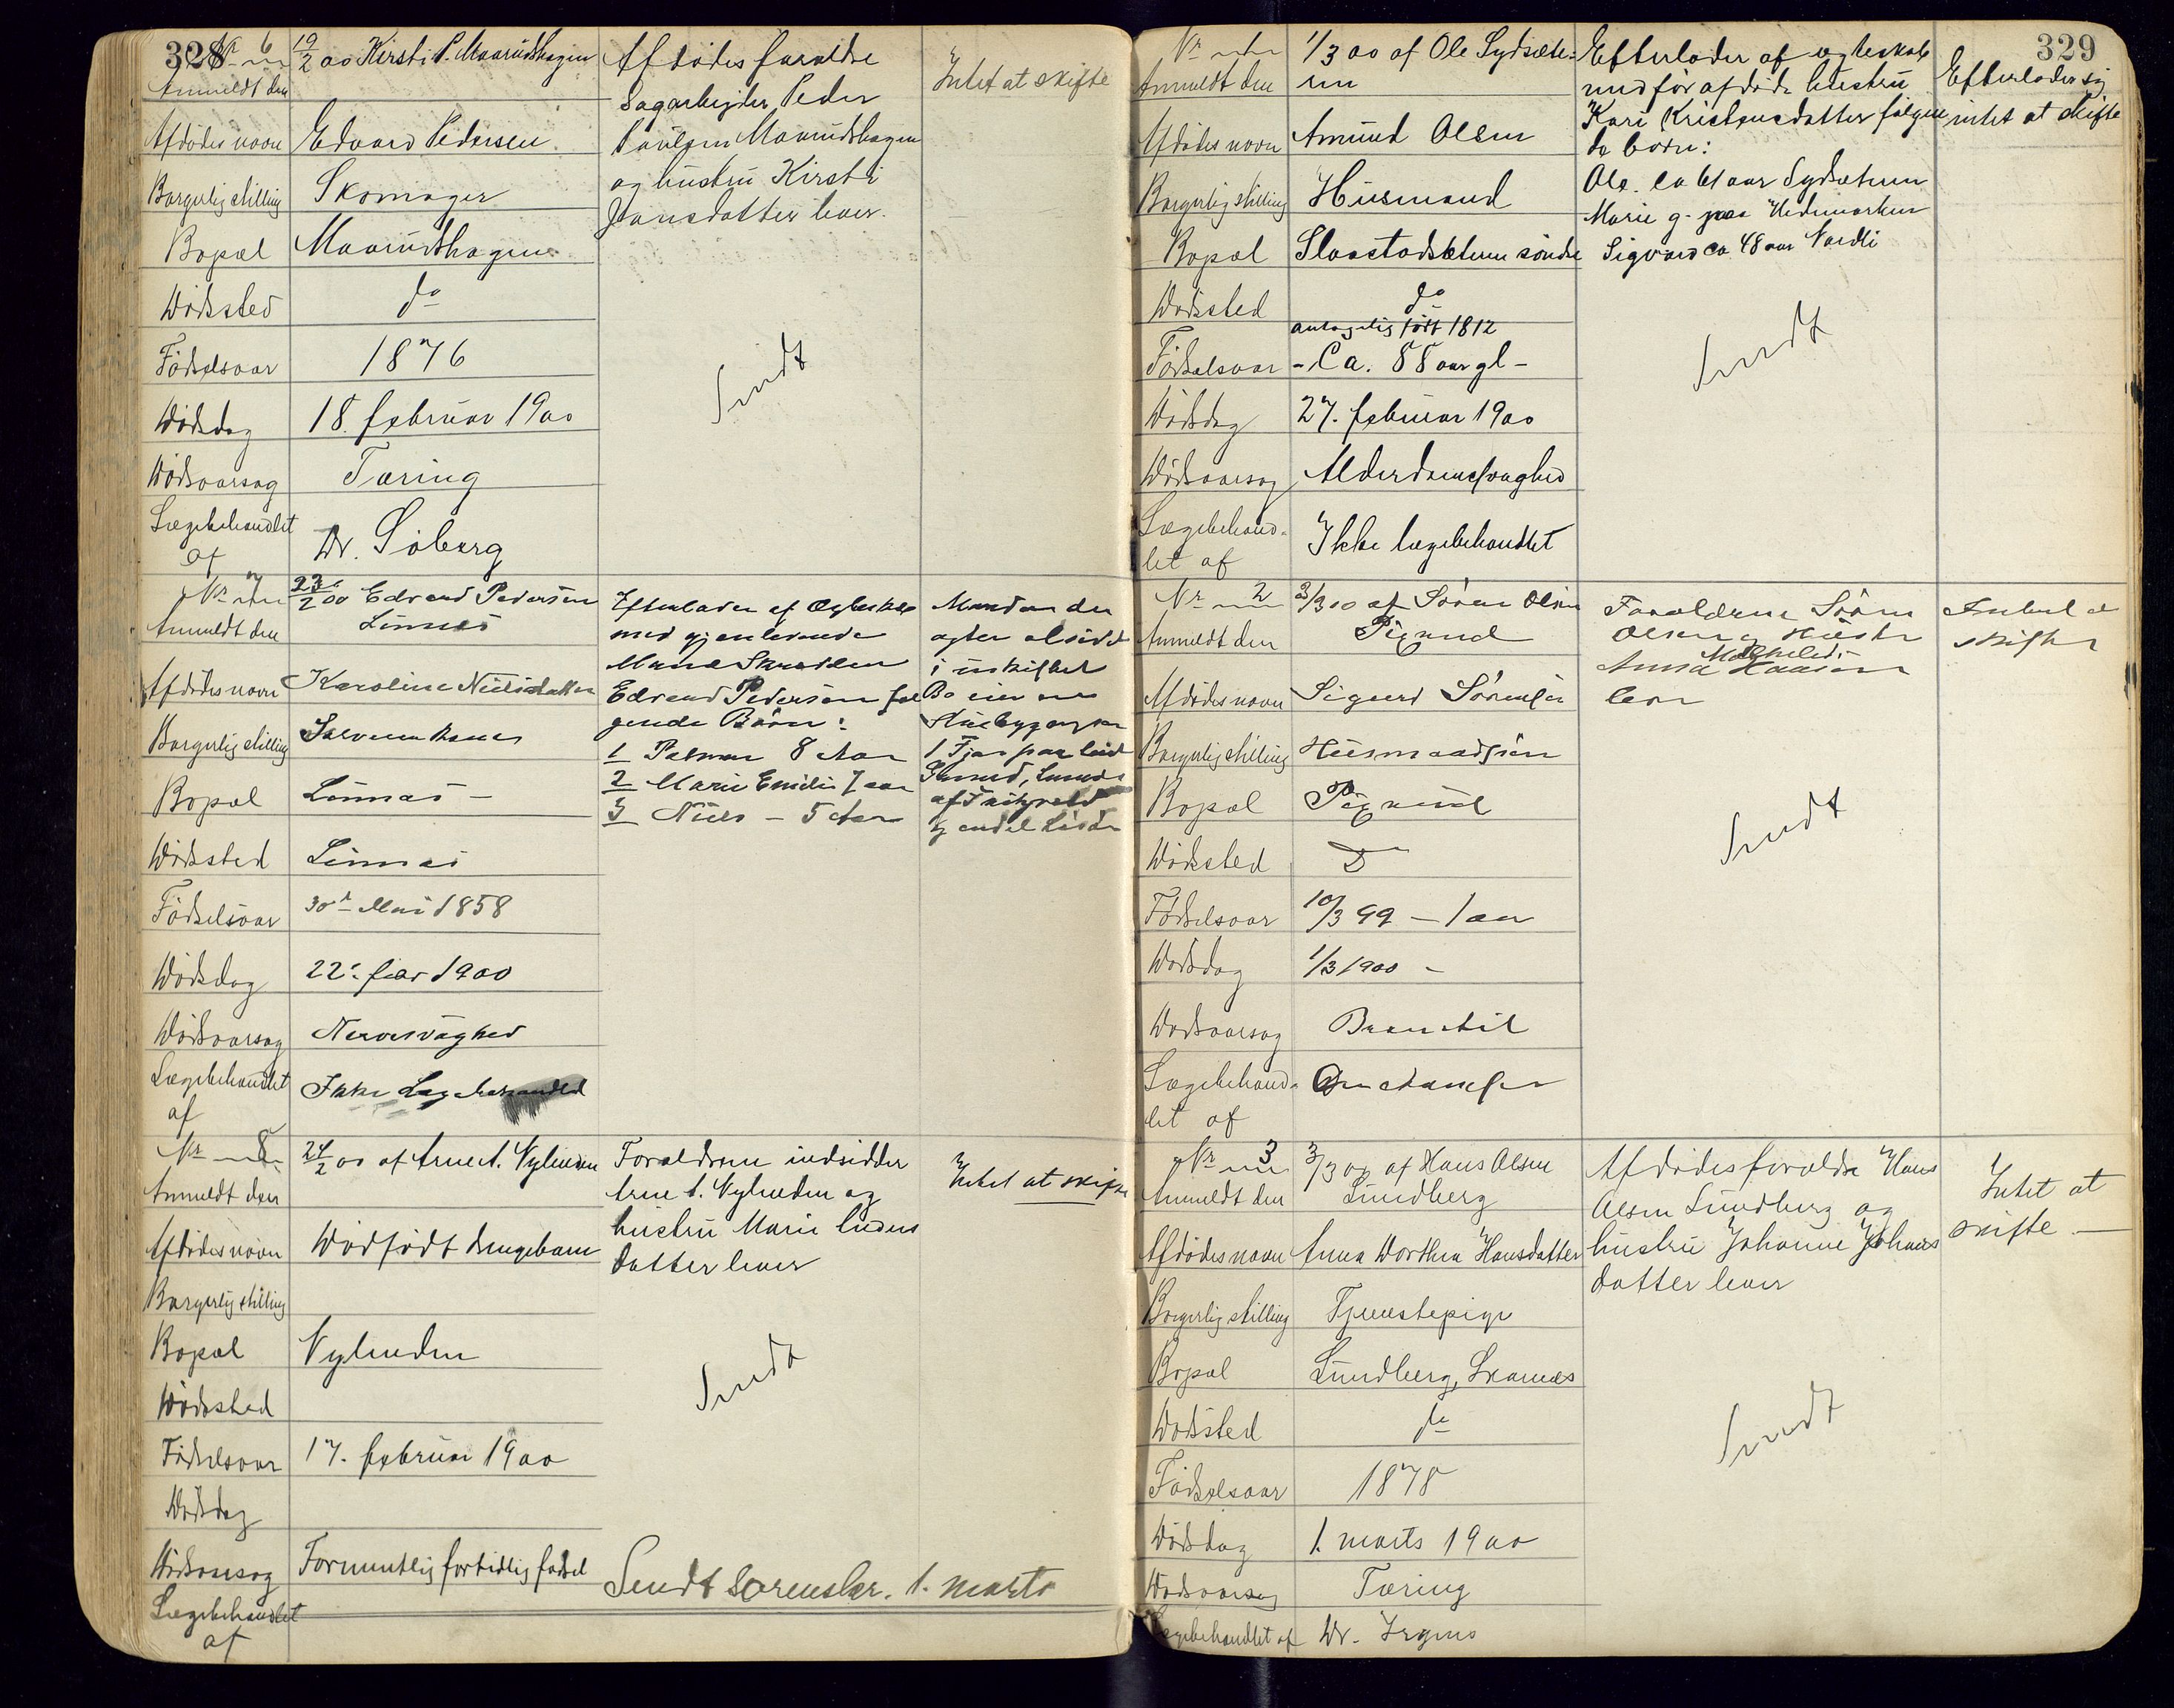 328
Nr 6
Anmeldt den
19/2 00 Kirsti P. Maarudshagen
Afdødes navn
Edvard Pedersen
Borgerlig stilling
Skomager
Bopæl
Maarudshagen
Dødssted
do
Fødselsaar
1876
Dødsdag
18. februar 1900
Dødsaarsag
Tæring
Lægebehandlet
af
Dr. Søberg
Afdødes forældre
Sagarbejder Peder
Paulsen Maarudshagen
og hustru Kirsti
Jonsdatter lever.
Intet at skifte
Sendt
Nr 7
Anmeldt den
23/2 00 Edvard Pedersen
Linnes
Afdødes navn
Karoline Nielsdatter
Borgerlig stilling
Bopæl
Linnæs –
Dødssted
Linnæs
Fødselsaar
30te Mai 1858
Dødsdag
22. febr 1900
Dødsaarsag
Nervesvaghed
Lægebehandlet
af
Ikke Lægebehandlet
Efterlader af Ægteskab
med gjenlevende
Mand Skrædder
Edvard Pedersen føl
gende Børn:
1 Petmar 8 Aar
2 Marie Emilie 7 aar
3 Niels – 5 Aar
Manden der
agter at sidde
i uskiftet
Bo eier en
Husbygning paa
Grund,
Nr 8
Anmeldt den
24/2 00 af Arne A. Nylunden
Afdødes navn
Dødfødt drengebarn
Borgerlig stilling
Bopæl
Nylunden
Dødssted
Fødselsaar
17. februar 1900
Dødsdag
Dødsaarsag
Formentlig fortidlig fødsel
Lægebehandlet
af
Forældrene indsidder
Arne A. Nylunden og
hustru Marie
datter lever
Intet at skifte
Sendt
Sendt Sorenskr. 1. marts
329
Nr
Anmeldt den
1/3 00 af Ole Sydsæte-
ren
Afdødes navn
Amund Olsen
Borgerlig stilling
Husmand
Bopæl
Slaastadsæteren søndre
Dødssted
do
antagelig født 1812
Fødselsaar
– Ca. 88 aar gl –
Dødsdag
27. februar 1900
Dødsaarsag
Alderdomssvaghed
Lægebehand-
let af
Ikke lægebehandlet
Efterlader af ægteskab
med før afdøde hustru
Kari Kristensdatter følgen
de børn:
Ole ca 61 aar Sydsæteren
Marie g. paa Hedemarken
Sigvard ca 48 aar Nordli
Efterlader sig
intet at skifte
Sendt
Nr 2
Anmeldt den
3/3 00 af Søren Olsen
Afdødes navn
Sigurd Sørensen
Borgerlig stilling
Husmandssøn
Bopæl
Dødssted
Do
Fødselsaar
10/3 99 – 1 aar
Dødsdag
1/3 1900 –
Dødsaarsag
Lægebehand-
let af
Forældrene Søren
Olsen og Hustru
Anna Mathilde Hansen
lever
Intet at
skifte
Sendt
Nr 3
Anmeldt den
3/3 00 af Hans Olsen
Lundberg
Afdødes navn
Anna Dorthea Hansdatter
Borgerlig stilling
Tjenestepige
Bopæl
Lundberg, Skarnæs
Dødssted
do
Fødselsaar
1878
Dødsdag
1. marts 1900
Dødsaarsag
Tæring
Lægebehandlet af
Dr. Irgens
Afdødes forældre Hans
Olsen Lundberg og
hustru Johanne Johans
datter lever
Intet at
skifte –
Sendt